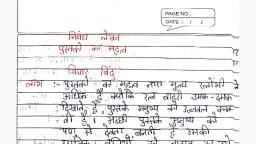 PAGE NO :
DATE : / /
निबंध लेखन
पुस्तकों का महत्व
विचार बिंदु
लाभ :- पुस्तकों का महत्व तथा मूल्य रत्नों से
अधिक है, क्योंकि रत्न बाहरी चमक-दमक
दिखाते हैं पुस्तकें मनुष्य को उज्जवल बना
ती हैं। अच्छी पुस्तकें मनुष्य को
से देवता बनाती हैं उसकी